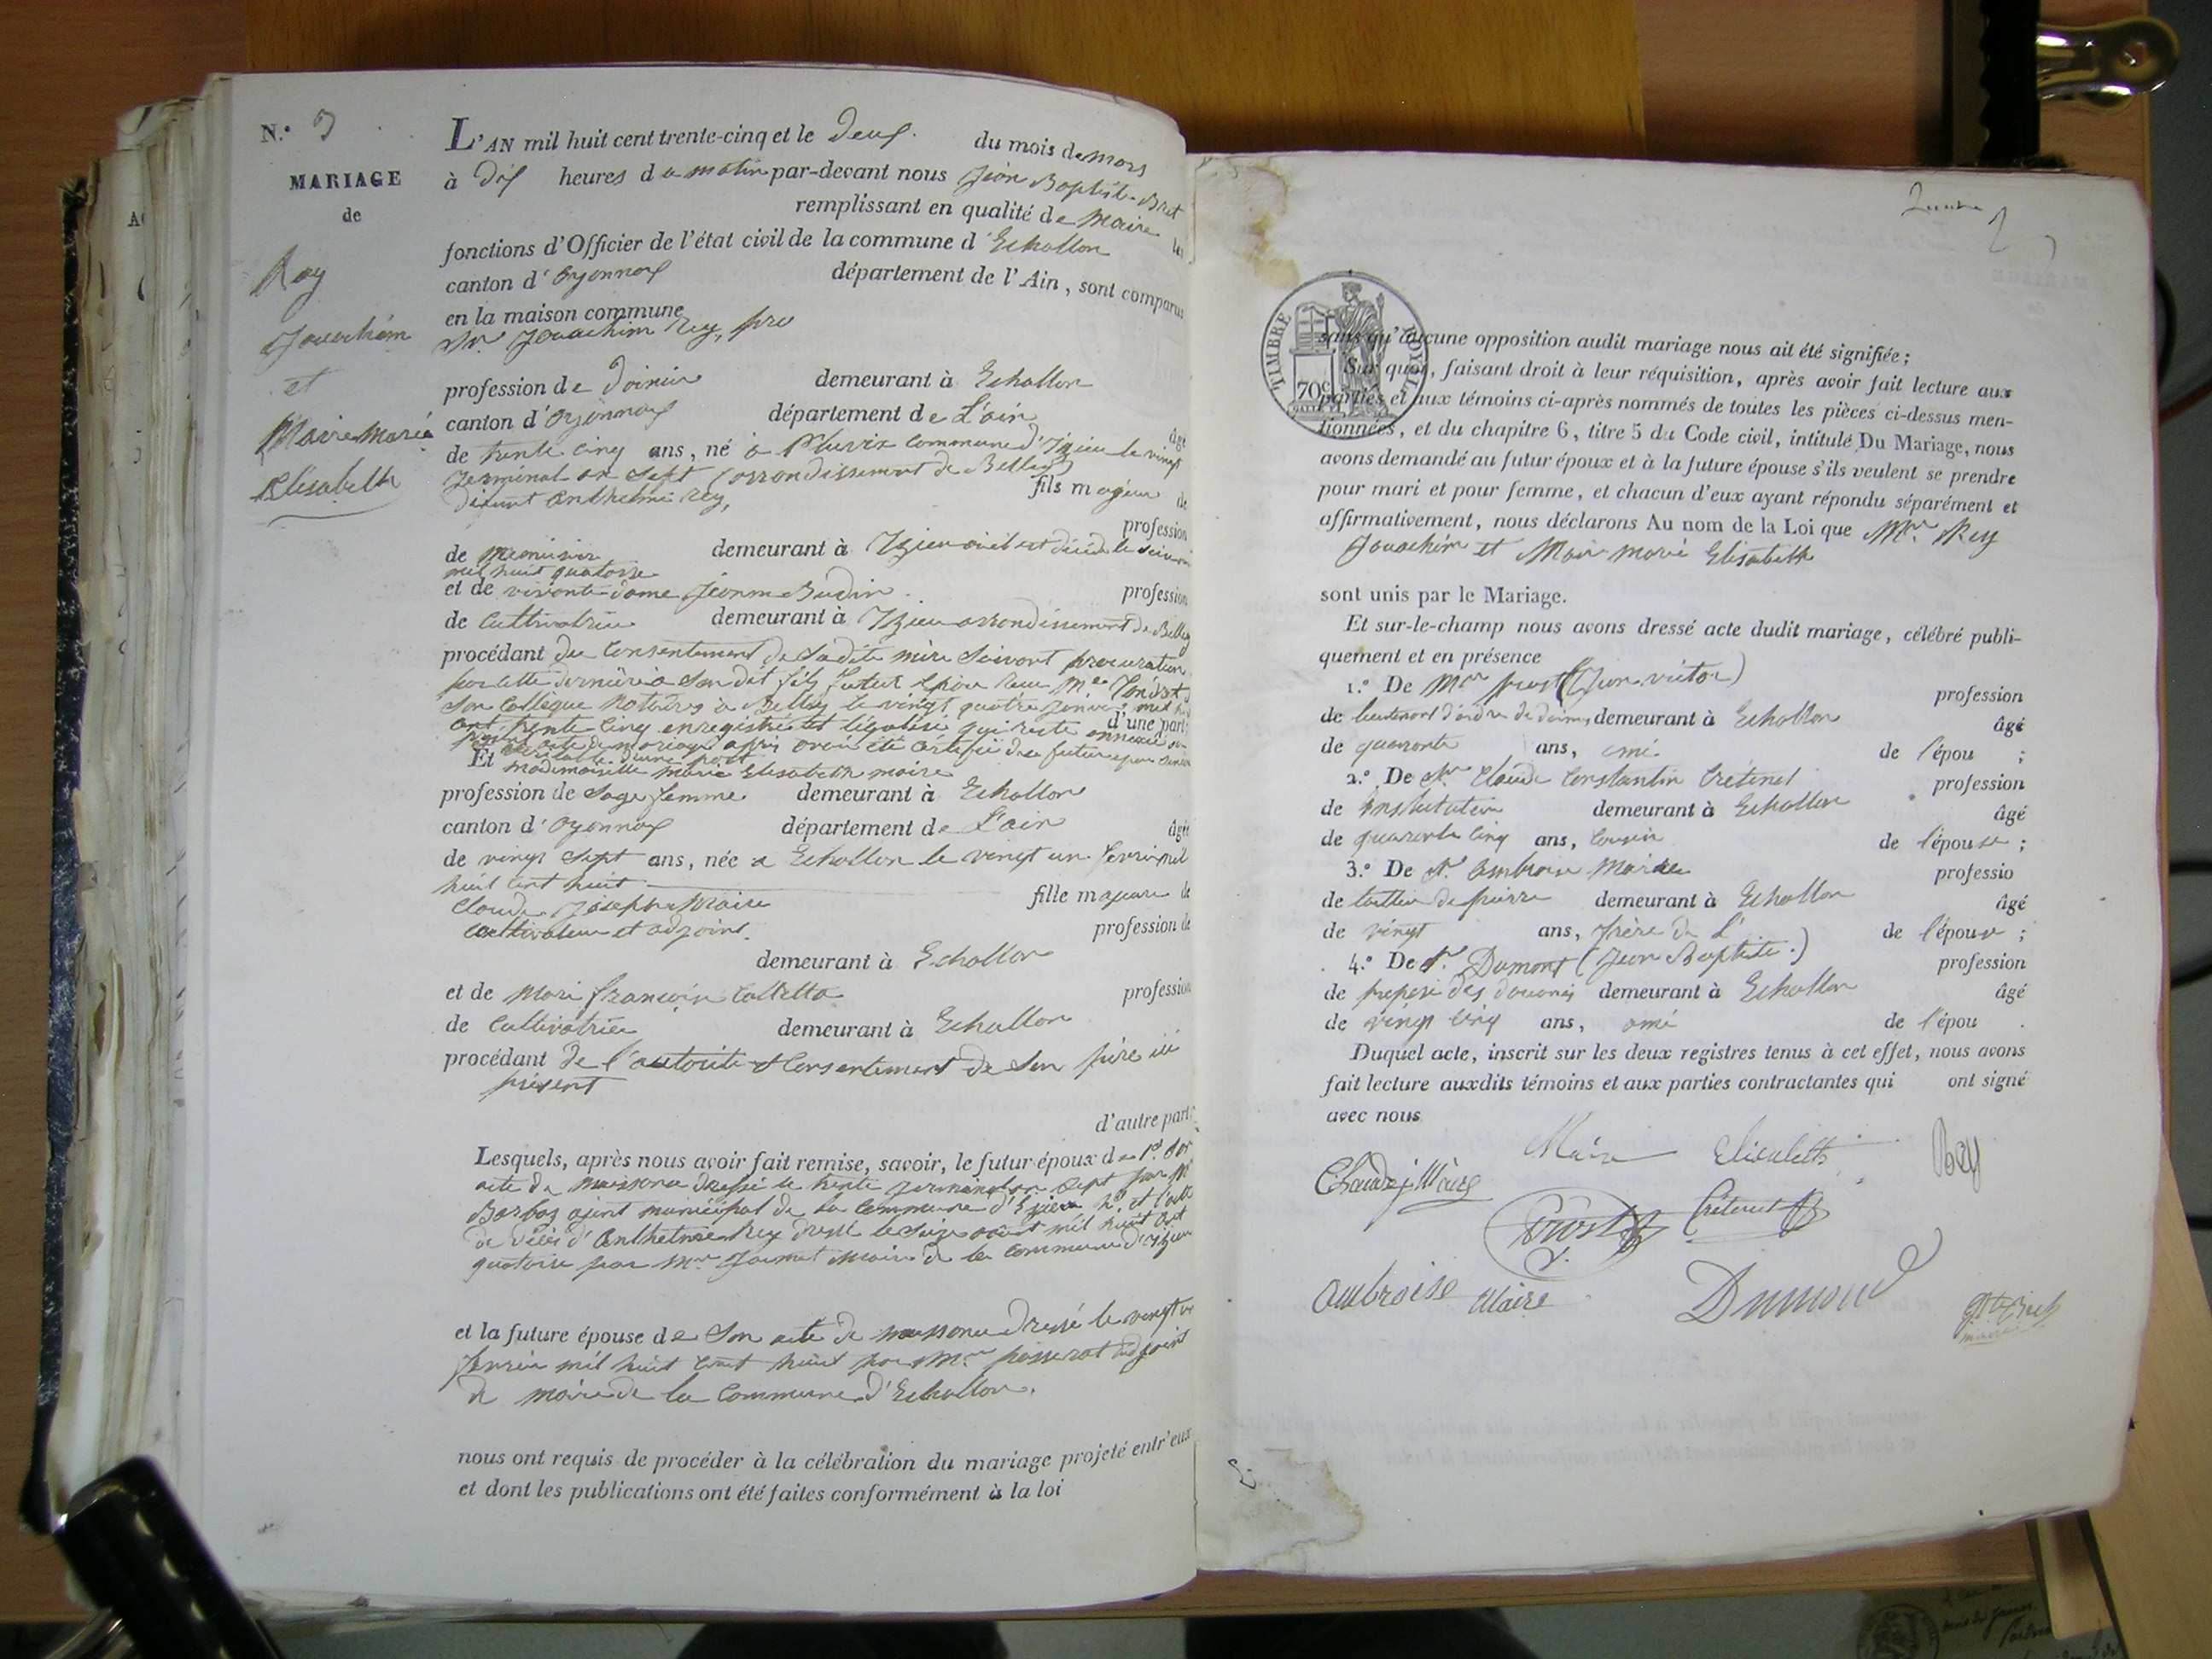 N.° 3
MARIAGE
de
Rey
Jouachim
et
Maire Marie
Elisabeth
L'AN mil huit cent trente-cinq et le Deux du mois de mars
à Dix heures du matin par-devant nous Jean Baptiste Bret
remplissant en qualité de Maire les
fonctions d'Officier de l'état civil de la commune d'Echallon
canton d'Oyonnax département de l'Ain, sont comparus
en la maison commune
Sr. Jouachim Rey,
profession de demeurant à Echallon
canton d'Oyonnax département de L'ain âgé
de trente cinq ans, né à commune d'Izieu le vingt
Germinal an Sept (arrondissement de Belley)
défunt Anthelme Rey, fils majeur de
profession
de demeurant à Izieu où il est décédé le
mil huit quatorze
et de vivante dame Jeanne Budin profession
de Cultivatrice demeurant à Izieu arrondissement de Belley
procédant du Consentement de Sadite mère Suivant procuration
par cette dernière à Son dit fils futur époux
Son Collègue Notaires à Belley le vingt quatre Janvier mil
cent trente cinq enregistrée et légalisée qui reste annexée au d'une part;
acte de mariage après avoir été
Et mademoiselle Marie Elisabeth maire
profession de Sage femme demeurant à Echallon
canton d'Oyonnax département de L'ain âgée
de vingt Sept ans, née à Echallon le vingt un mil
huit cent huit fille majeure de
Claude Joseph Maire
Cultivateur et adjoint profession de
demeurant à Echallon
et de Mari françoise profession
de Cultivatrice demeurant à Echallon
procédant de l'autorité et Consentement de Son père ici
présent
d'autre part;
Lesquels, après nous avoir fait remise, savoir, le futur époux de 1°. Son
acte de naissance Dressé le trente Germinal an Sept par Mr
ajoint municipal de la Commune d'Izieu 2°. et l'acte
de Décès d'Anthelme Rey Dressé le Seize août mil huit cent
quatorze par Mr. Maire de la Commune d'Izieu
et la future épouse de Son acte de naissance Dressé le vingt un
mil huit cent huit par Mr. passerat adjoint
de maire de la Commune d'Echallon.
nous ont requis de procéder à la célébration du mariage projeté entr'eux
et dont les publications ont été faites conformément à la loi
2
TIMBRE ROYAL
70c
sans qu'aucune opposition audit mariage nous ait été signifiée;
Sur quoi, faisant droit à leur réquisition, après avoir fait lecture aux
parties et aux témoins ci-après nommés de toutes les pièces ci-dessus men-
tionnées, et du chapitre 6, titre 5 du Code civil, intitulé Du Mariage, nous
avons demandé au futur époux et à la future épouse s'ils veulent se prendre
pour mari et pour femme, et chacun d'eux ayant répondu séparément et
affirmativement, nous déclarons Au nom de la Loi que Mr. Rey
Jouachim et Maire Marie Elisabeth
sont unis par le Mariage.
Et sur-le-champ nous avons dressé acte dudit mariage, célébré publi-
quement et en présence
1.° De Mr prost (Jean victor) profession
de lieutenant d'ordre de demeurant à Echallon âgé
de quarante ans, ami de l'épou ;
2.° De Sr Claude Constantin Crétenet profession
de instituteur demeurant à Echallon âgé
de quarente cinq ans, cousin de l'épouse ;
3.° De Sr. Ambroise Maire professio
de tailleur de pierre demeurant à Echallon âgé
de vingt ans, frère de L' de l'épouse ;
4.° De Sr. Dumont (Jean Baptiste.) profession
de preposé des douanes demeurant à Echallon âgé
de vingt cinq ans, ami de l'épou .
Duquel acte, inscrit sur les deux registres tenus à cet effet, nous avons
fait lecture auxdits témoins et aux parties contractantes qui ont signé
avec nous
Maire Elisabeth Rey
Claude j Maire
Prost Crétenet
Ambroise Maire Dumond